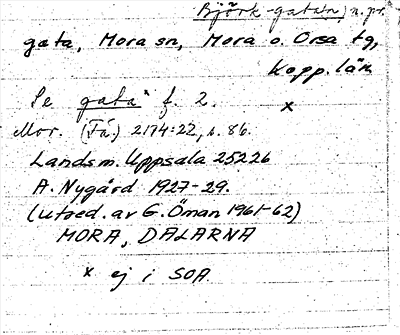 Björk-gatan, n. pr.
gata, Mora sn, Mora o. Orsa tg,
Kopp. län
Se gata f. 2. x
Mor. (Få.) 2174:22, s. 86.
Landsm. Uppsala 25226
A. Nygård 1927-29.
(utred. av G. Öman 1961-62)
MORA, DALARNA
x ej i SOA